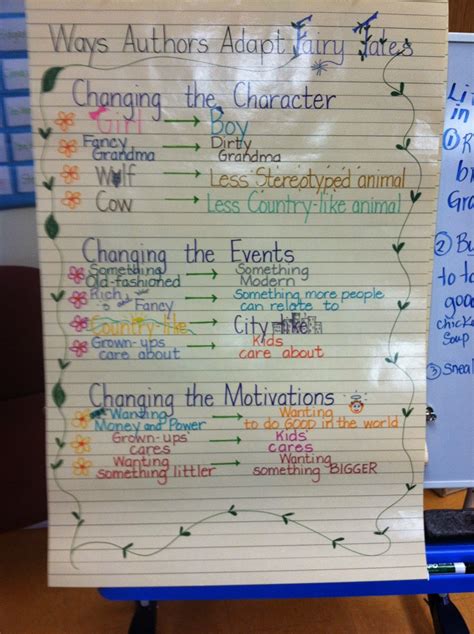 Ways Authors Adapt Fairy Tales
Changing the Character
Girl → Boy
Fancy Grandma → Dirty Grandma
Wolf → Less Stereotyped animal
Cow → Less Country-like animal
Changing the Events
Something Old-fashioned → Something Modern
Rich, Fancy → Something more people can relate to
Country-like → City like
Grown-ups care about → Kids care about
Changing the Motivations
Wanting Money and Power → Wanting to do GOOD in the world
Grown-ups' cares → Kids' cares
Wanting something littler → Wanting something BIGGER
in
①
②
to to
good
chick
Soup
③ Sneal
EXPO